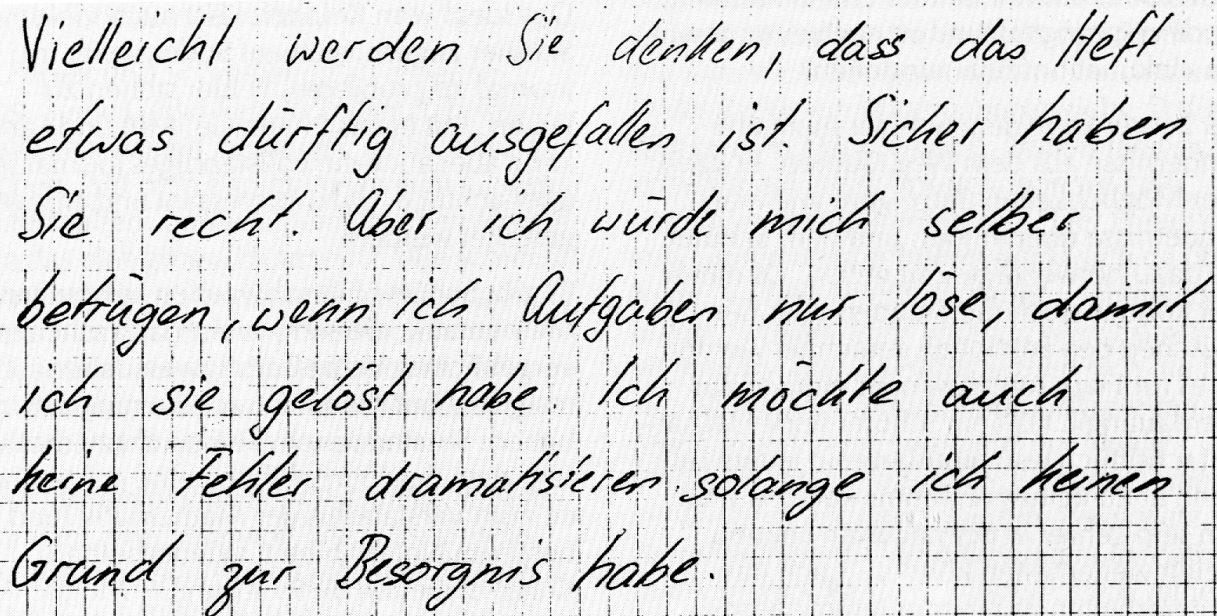 Vielleicht werden Sie denken, dass das Heft
etwas dürftig ausgefallen ist. Sicher haben
Sie recht. Aber ich würde mich selber
betrügen, wenn ich Aufgaben nur löse, damit
ich sie gelöst habe. Ich möchte auch
keine Fehler dramatisieren solange ich keinen
Grund zur Besorgnis habe.